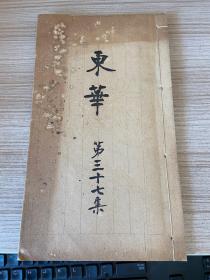 東華
第三十七集